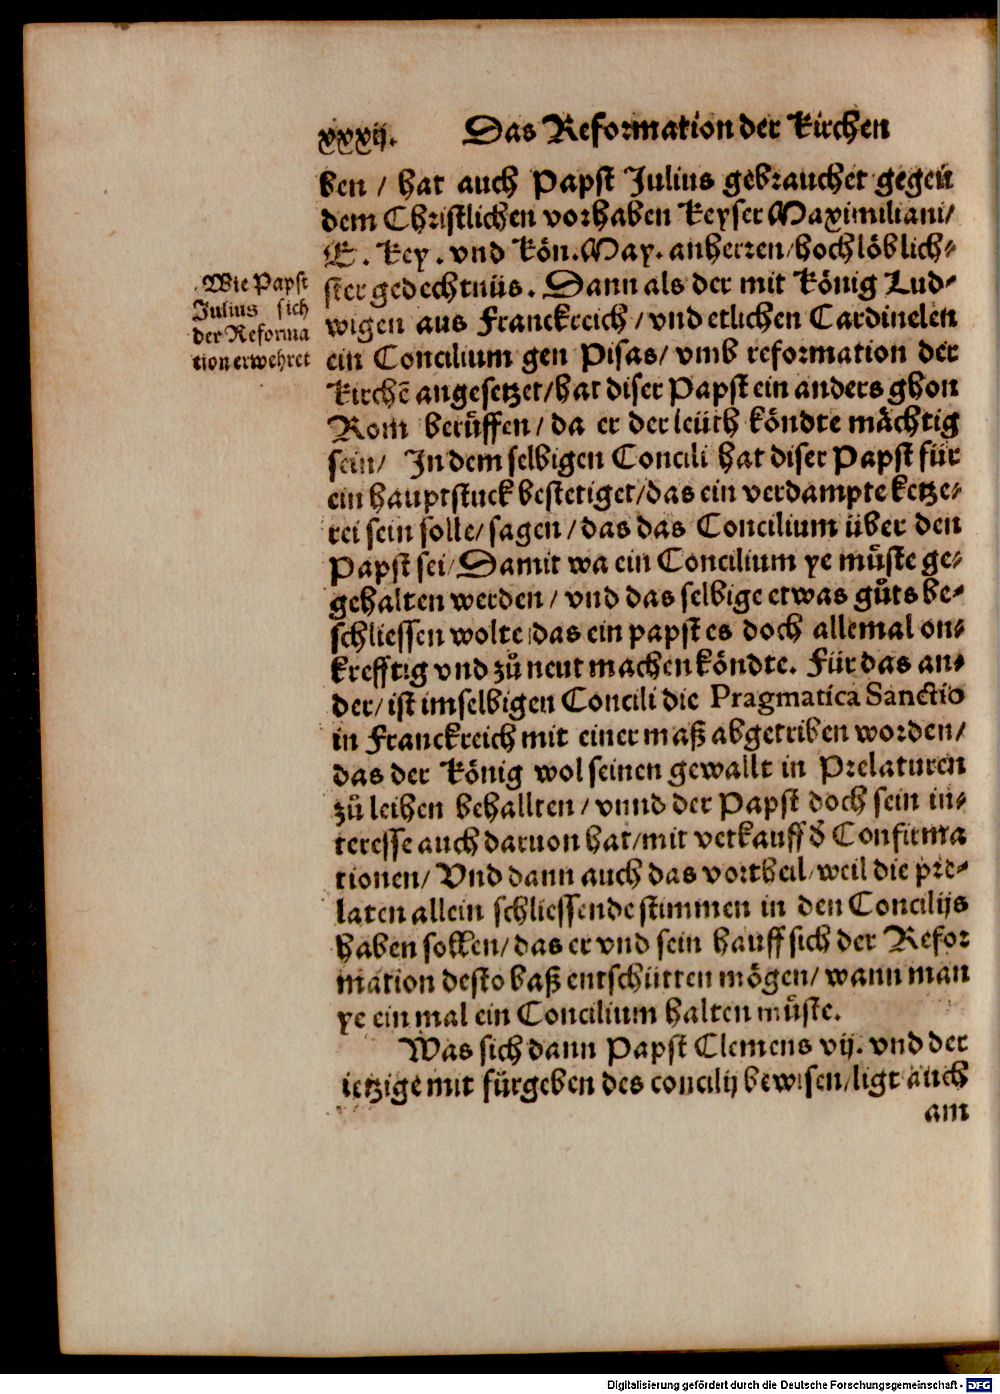 xxxij. Das Reformation der Kirchen
ben / hat auch Papst Julius gebrauchet gegen̄
dem Christlichen vorhaben Keyser Maximiliani/
E. Key. vnd Kön. May. anherren/hochlöblich⸗
ster gedechtnüs. Dann als der mit König Lud⸗
wigen aus Franckreich / vnd etlichen Cardinelen
ein Concilium gen Pisas/ vmb reformation der
Kirchē angesetzet/hat diser Papst ein anders ghon
Rom berüffen / da er der leüth köndte mächtig
sein/ In dem selbigen Concili hat diser Papst für
ein hauptstuck bestetiget/das ein verdampte ketze⸗
rei sein solle/ sagen / das das Concilium über den
Papst sei/ Damit wa ein Concilium ye müste ge⸗
gehalten werden / vnd das selbige etwas gůts be⸗
schliessen wolte/das ein papst es doch allemal on⸗
krefftig vnd zů neut machen köndte. Für das an⸗
der/ ist im selbigen Concili die Pragmatica Sanctio
in Franckreich mit einer maß abgetriben worden/
das der König wol seinen gewallt in Prelaturen
zů leihen behallten / vnnd der Papst doch sein in⸗
teresse auch daruon hat/mit verkauff d̄ Confirma
tionen/ Vnd dann auch das vortheil/weil die pre⸗
laten allein schliessende stimmen in den Concilijs
haben sollen/ das er vnd sein hauff sich der Refor
mation desto baß entschütten mögen/ wann man
ye ein mal ein Concilium halten müste.
Was sich dann Papst Clemens vij. vnd der
ietzige mit fürgeben des concilij bewisen/ligt auch
am
Wie Papst
Julius sich
der Reforma
tion erwehret
Digitalisierung gefördert durch die Deutsche Forschungsgemeinschaft - DFG